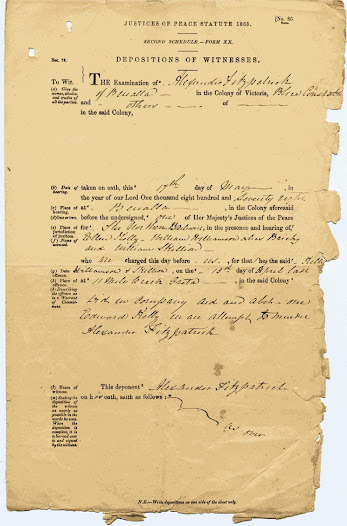 [No. 80.
JUSTICES OF PEACE STATUTE 1865.
SECOND SCHEDULE.—FORM XX.
Sec. 78.
DEPOSITIONS OF WITNESSES.
To Wit. THE Examination of Alexander Fitzpatrick
(a) Give the names, abodes, and trades of all the parties.
of Benalla in the Colony of Victoria, Police Constable
and others of
in the said Colony,
(b) Date of hearing. taken on oath, this 17th day of May in
the year of our Lord One thousand eight hundred and Seventy eight
(c) Place of hearing. at Benalla, in the Colony aforesaid
before the undersigned, one of Her Majesty's Justices of the Peace
(e) Place of jurisdiction of justices. for in the presence and hearing of
(f) Name of accused. Ellen Kelly William Williamson alias Bricky
and William Skillion
who are charged this day before for that they the said Kelly
(g) Date of offence. Williamson & Skillion, on the 15th day of April last
(h) Place of offence. at 11 Mile Creek Greta in the said Colony
(i) Describing the offence as in a Warrant of Commitment.
Did in company aid and abet one
Edward Kelly in an attempt to murder
Alexander Fitzpatrick
(l) Name of witness. This deponent Alexander Fitzpatrick
on h oath, saith as follows:
(m) Stating the deposition of the witness as nearly as possible in the words he uses. When the deposition is complete, it is to be read over to and signed by the witness.
N.B.—Write depositions on one side of the sheet only.